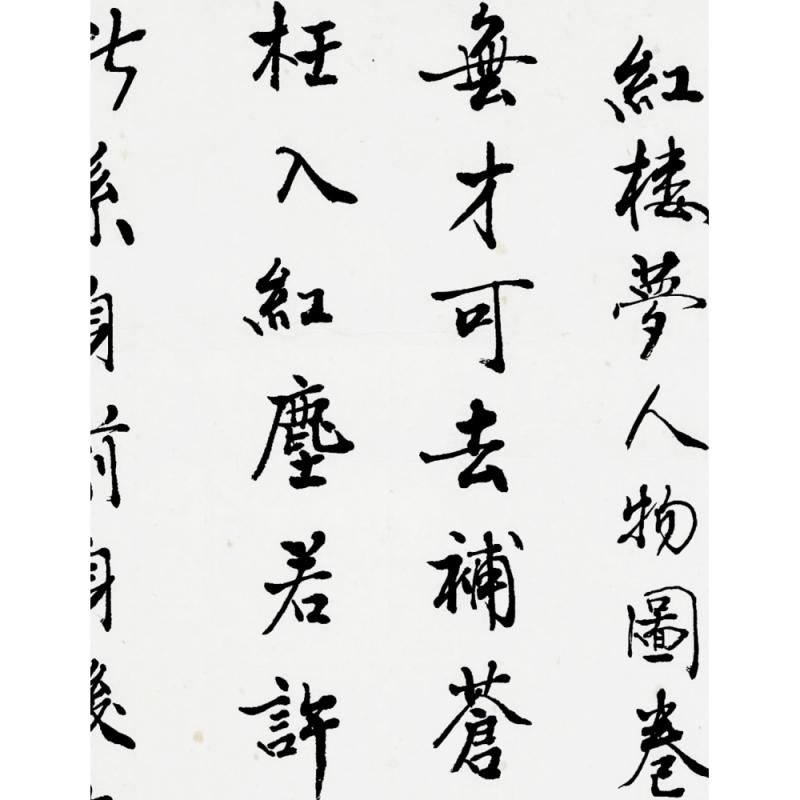 紅楼夢人物圖卷
無才可去補蒼
枉入紅塵若許
此系身前身後